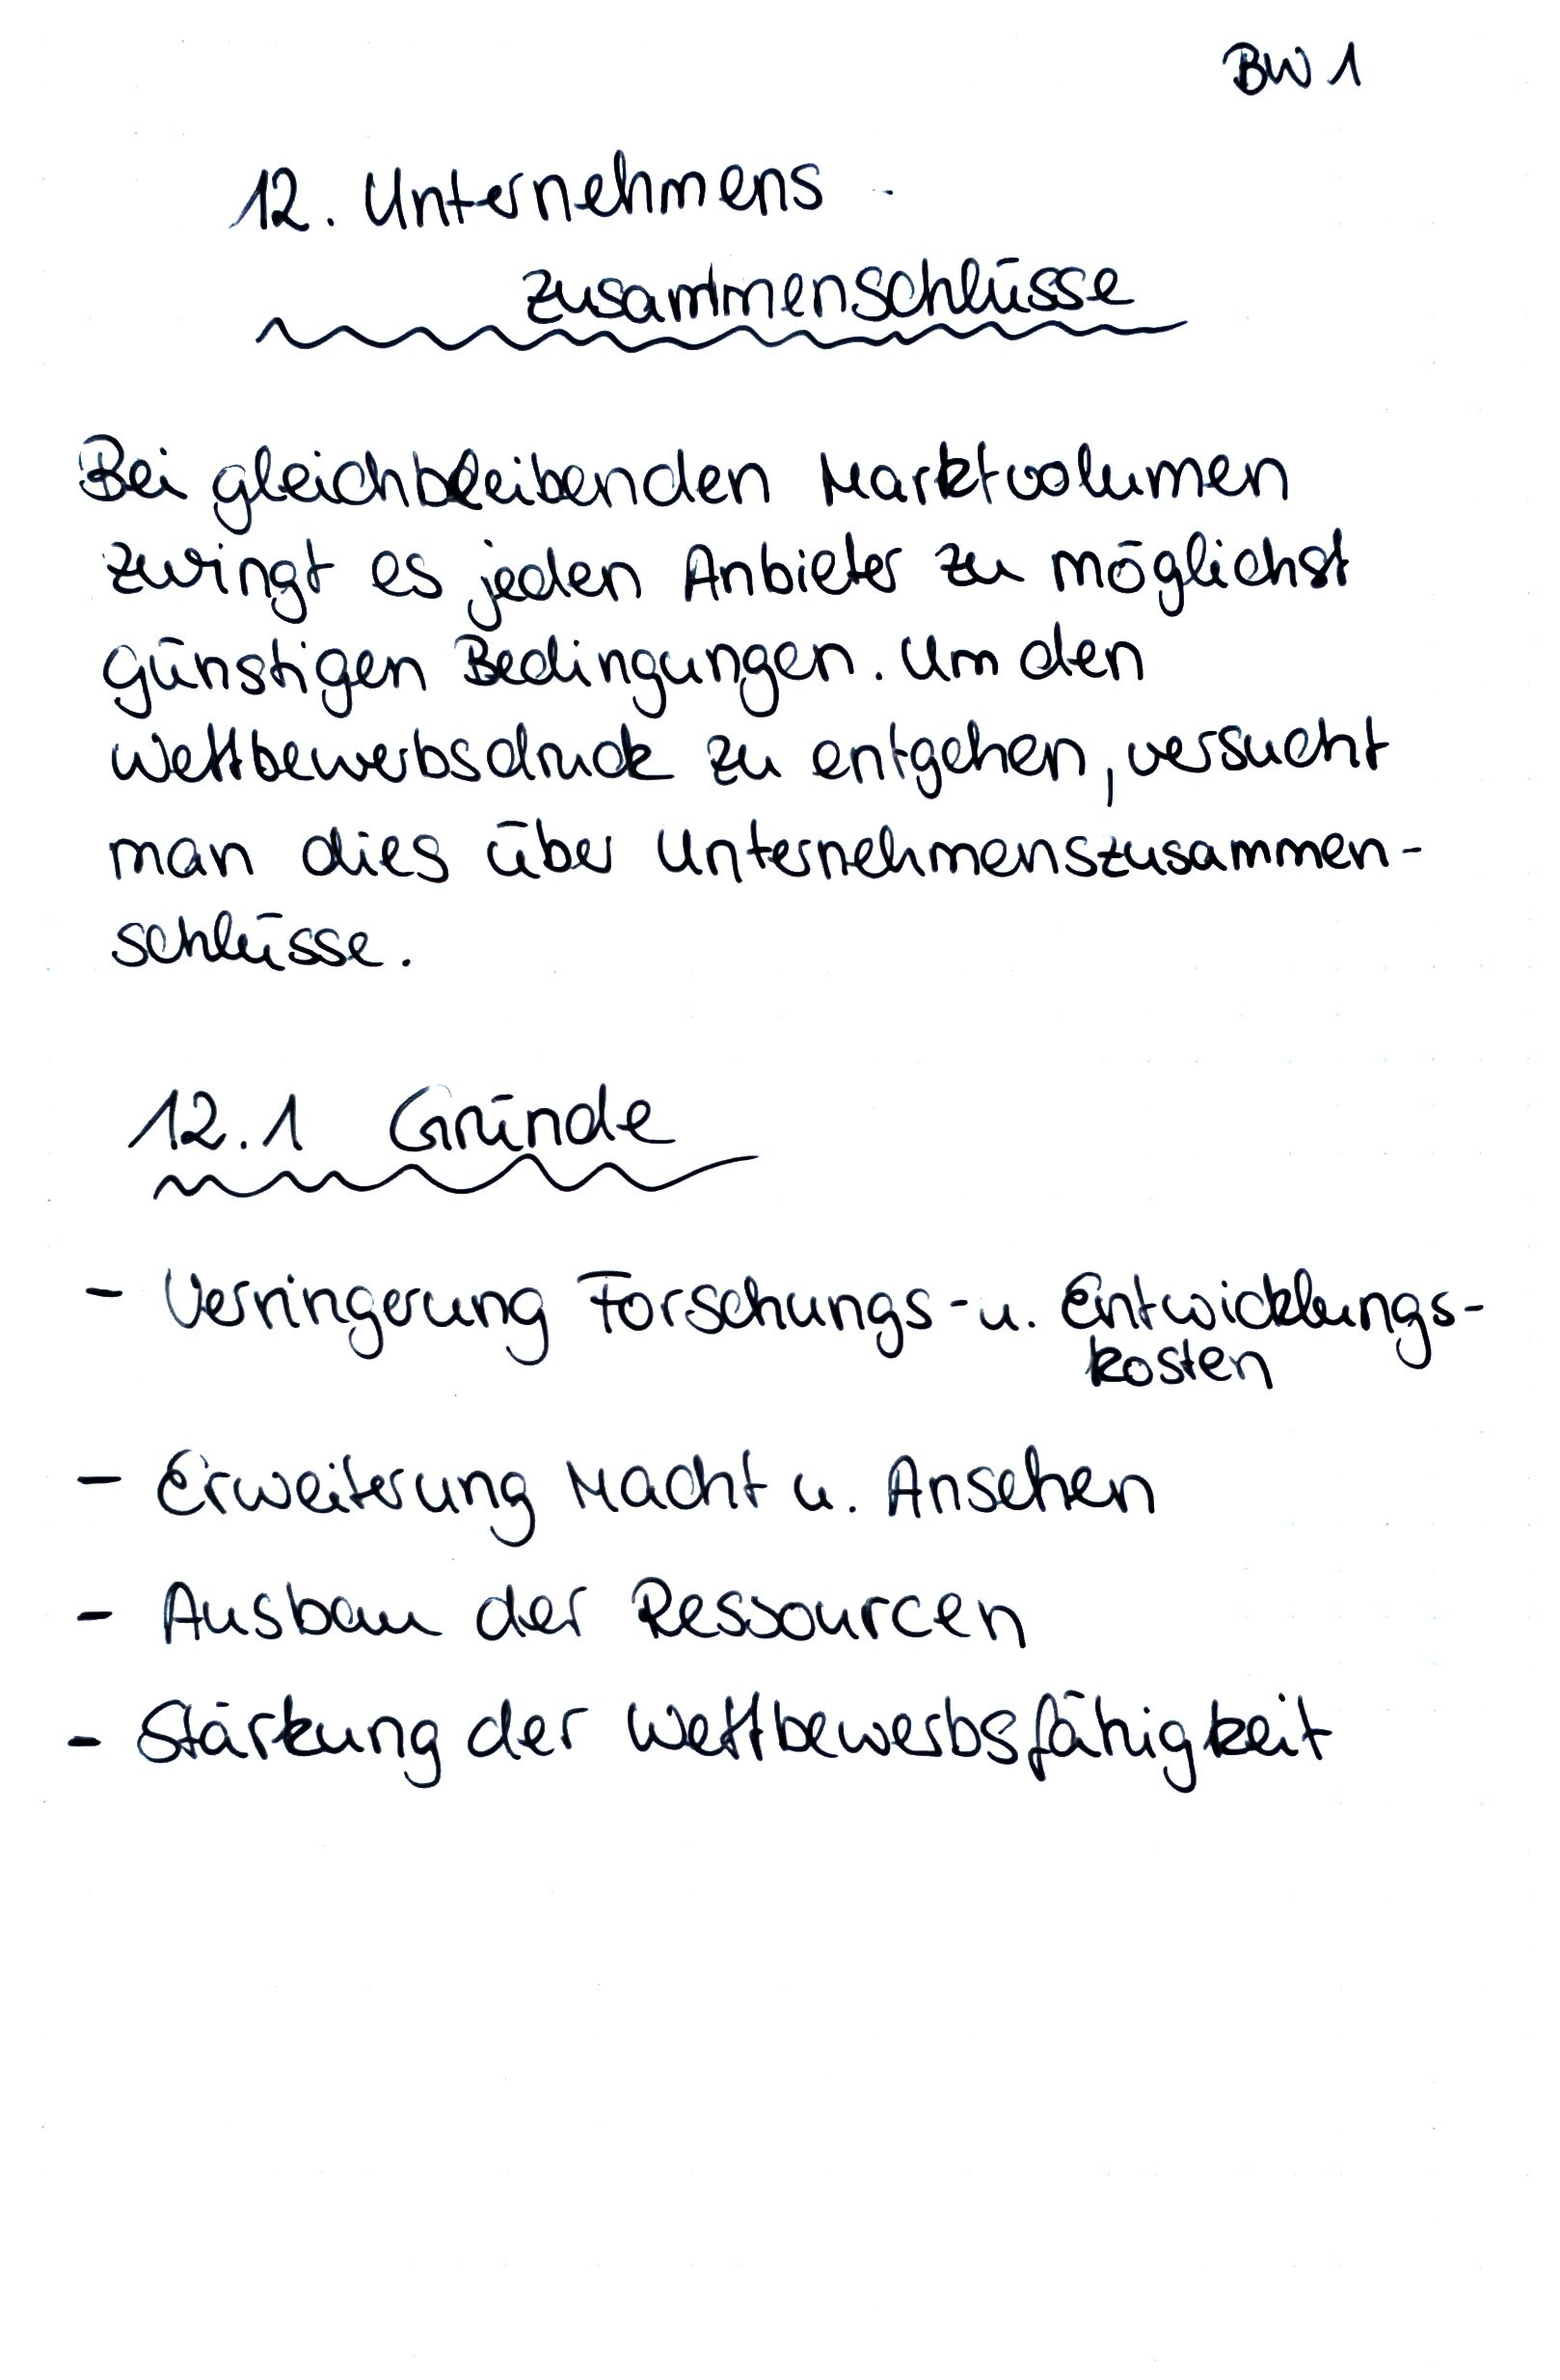 BW 1
12. Unternehmens-
zusammenschlüsse
Bei gleichbleibenden Marktvolumen
zwingt es jeden Anbieter zu möglichst
günstigen Bedingungen. Um den
Wettbewerbsdruck zu entgehen, versucht
man dies über Unternehmenszusammen-
schlüsse.
12.1 Gründe
- Verringerung Forschungs- u. Entwicklungs-
kosten
- Erweiterung Macht u. Ansehen
- Ausbau der Ressourcen
- Stärkung der Wettbewerbsfähigkeit